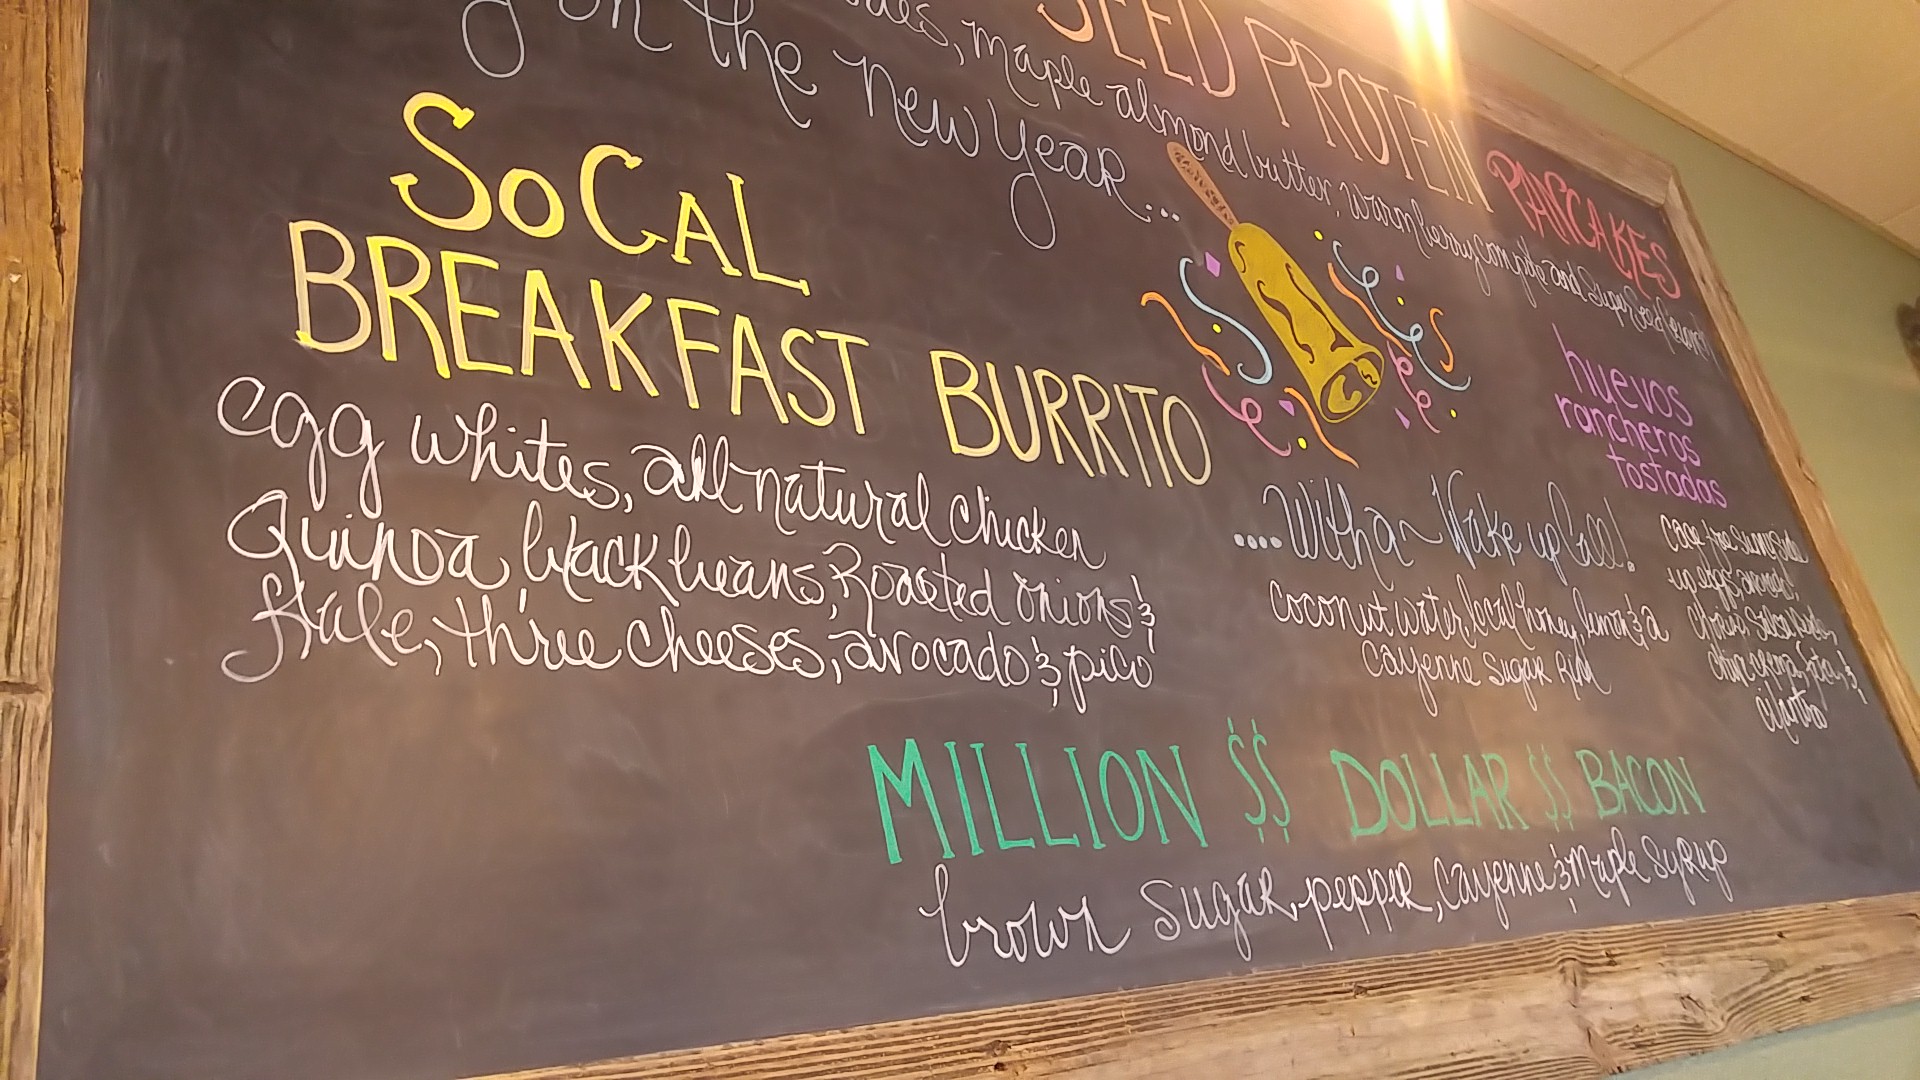 g in the new year...
SEED PROTEIN
PANCAKES
maple almond butter, warm berry compote and
SoCAL
BREAKFAST BURRITO
egg whites, all natural chicken
Quinoa, black beans, Roasted onions &
Kale, three cheeses, avocado & pico
....With a Wake up Call!
coconut water, local honey, lemon & a
cayenne Sugar Rim
huevos
rancheros
tostadas
cage free sunny side
up eggs, avocado,
feta, &
cilantro
MILLION $$ DOLLAR $$ BACON
brown Sugar, pepper, cayenne & Maple Syrup